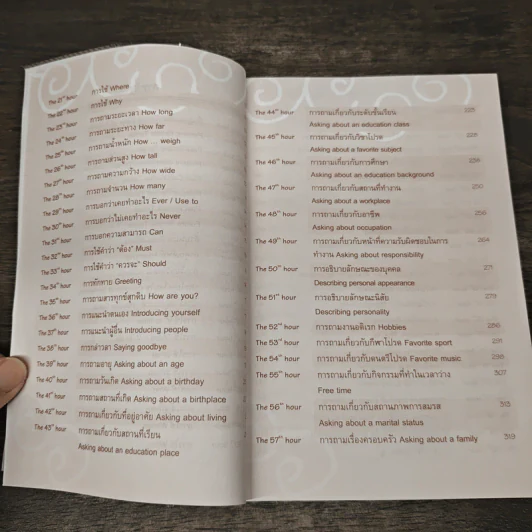 The 21st hour การใช้ Where
The 22nd hour การใช้ Why
The 23rd hour การถามระยะเวลา How long
The 24th hour การถามระยะทาง How far
The 25th hour การถามน้ำหนัก How ... weigh
The 26th hour การถามส่วนสูง How tall
The 27th hour การถามความกว้าง How wide
The 28th hour การถามจำนวน How many
The 29th hour การบอกว่าเคยทำอะไร Ever / Use to
The 30th hour การบอกว่าไม่เคยทำอะไร Never
The 31st hour การบอกความสามารถ Can
The 32nd hour การใช้คำว่า "ต้อง" Must
The 33rd hour การใช้คำว่า "ควรจะ" Should
The 34th hour การทักทาย Greeting
The 35th hour การถามสารทุกข์สุกดิบ How are you?
The 36th hour การแนะนำตนเอง Introducing yourself
The 37th hour การแนะนำผู้อื่น Introducing people
The 38th hour การกล่าวลา Saying goodbye
The 39th hour การถามอายุ Asking about an age
The 40th hour การถามวันเกิด Asking about a birthday
The 41st hour การถามสถานที่เกิด Asking about a birthplace
The 42nd hour การถามเกี่ยวกับที่อยู่อาศัย Asking about living
The 43rd hour การถามเกี่ยวกับสถานที่เรียน
Asking about an education place
The 44th hour การถามเกี่ยวกับระดับชั้นเรียน
Asking about an education class
The 45th hour การถามเกี่ยวกับวิชาโปรด
Asking about a favorite subject
The 46th hour การถามเกี่ยวกับการศึกษา
Asking about an education background
The 47th hour การถามเกี่ยวกับสถานที่ทำงาน 250
Asking about a workplace
The 48th hour การถามเกี่ยวกับอาชีพ
Asking about occupation
The 49th hour การถามเกี่ยวกับหน้าที่ความรับผิดชอบในการ 264
ทำงาน Asking about responsibility
The 50th hour การอธิบายลักษณะของบุคคล 271
Describing personal appearance
The 51st hour การอธิบายลักษณะนิสัย 279
Describing personality
The 52nd hour การถามงานอดิเรก Hobbies 286
The 53rd hour การถามเกี่ยวกับกีฬาโปรด Favorite sport 291
The 54th hour การถามเกี่ยวกับดนตรีโปรด Favorite music 298
The 55th hour การถามเกี่ยวกับกิจกรรมที่ทำในเวลาว่าง 307
Free time
The 56th hour การถามเกี่ยวกับสถานภาพการสมรส 313
Asking about a marital status
The 57th hour การถามเรื่องครอบครัว Asking about a family 319